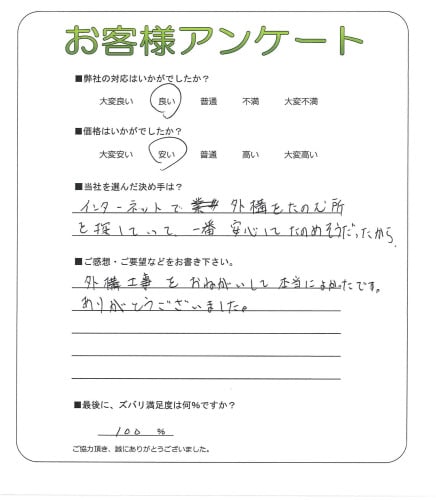 お客様アンケート
■弊社の対応はいかがでしたか?
大変良い 良い 普通 不満 大変不満
■価格はいかがでしたか?
大変安い 安い 普通 高い 大変高い
■当社を選んだ決め手は?
インターネットで 外構をたのむ所
を探していて、一番 安心してたのめそうだったから、
■ご感想・ご要望などをお書き下さい。
外構工事をおねがいして本当によかったです。
ありがとうございました。
■最後に、ズバリ満足度は何%ですか?
100 %
ご協力頂き、誠にありがとうございました。